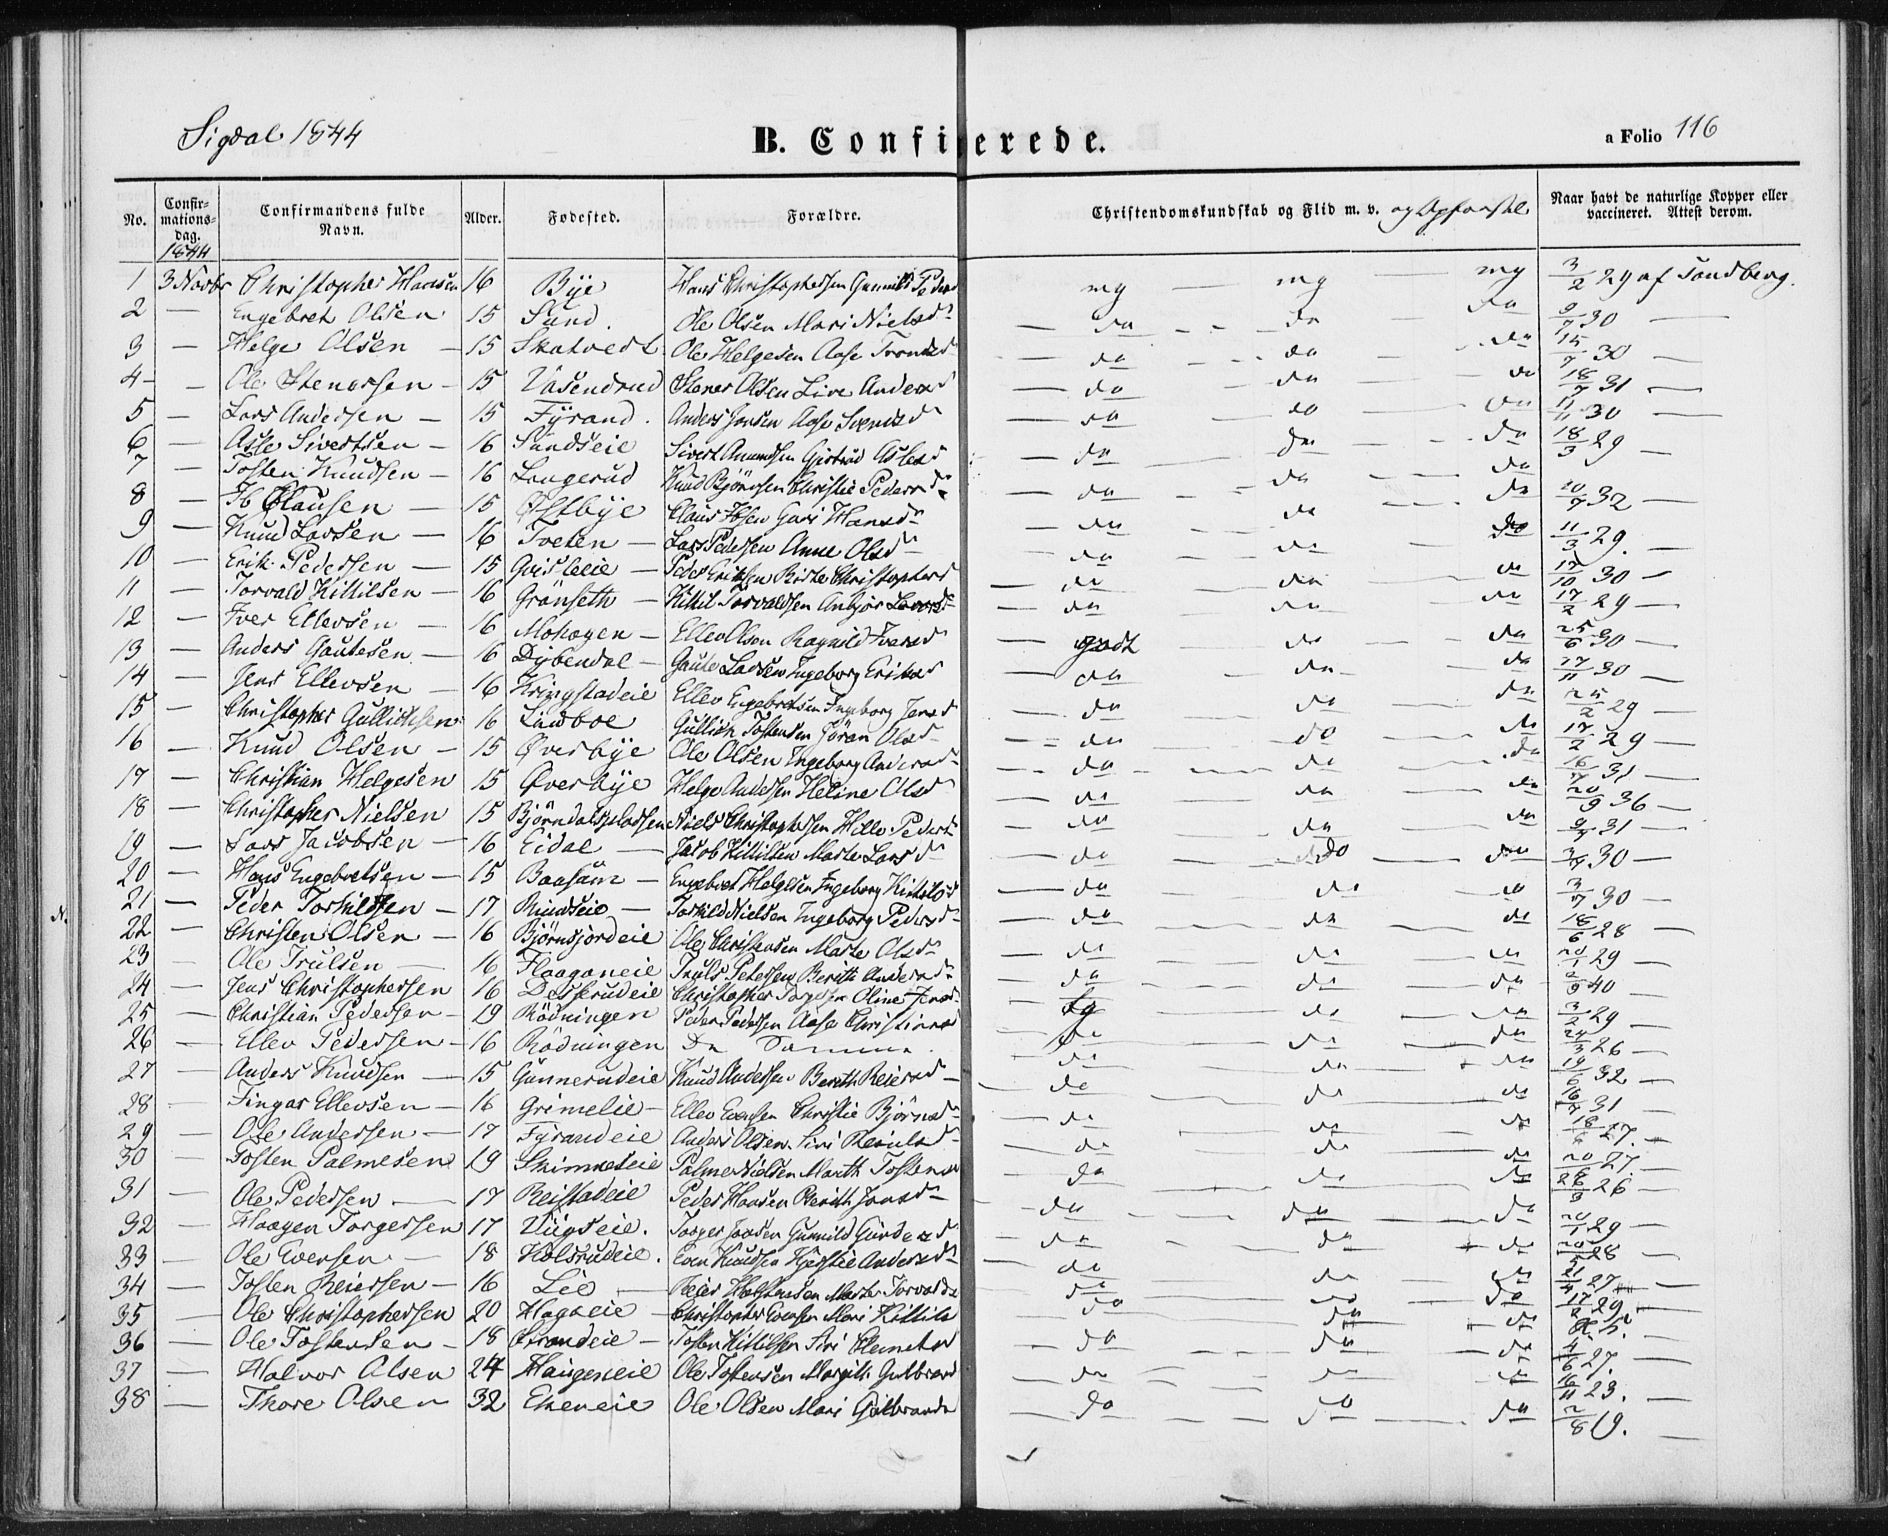 Sigdal 1844
B. Confirerede.
a Folio 116
No. Confirmations-dag. 1844 Confirmandens fulde Navn. Alder. Fødested. Forældre. Christendomskundskab og Flid m. v. og Opførsel Naar havt de naturlige Kopper eller vaccineret. Attest derom.
1 3 Novbr Christopher Hansen 16 Bye Hans Christophersen Gunnild Peders mg — mg — mg 3/2 29 af Sandberg.
2 — Engebret Olsen 15 Sund. Ole Olsen Mari Nielsd — da - - da da 9/7 30 —
3 — Helge Olsen — 15 Skatvedt Ole Helgesen Aase Trondsd — da - - da da 15/7 30 —
4 - - Ole Stenersen - 15 Vasendrud Stener Olsen Live Andersd — da da da 18/7 31 —
5 — Lars Andersen — 15 Fyrand. Anders Jonsen Aase Svendsd — da da da 11/11 30 —
6 — Asle Sivertsen — 16 Sundseie Sivert Amundsen Gjertrud Aslesd — da — da - - da 18/3 29 —
7 — Tosten Knudsen — 16 Langerud Knud Bjørnsen Christie Pedersd — da - - da da 20/7 32 —
8 — Ib Clausen — 15 Østbye Claus Ibsen Guri Hansdr — da da da
9 — Knud Larsen — 16 Tveten — Lars Pedersen Anne Olsdr — da da da 11/3 29. —
10 — Erik Pedersen — 15 Gvisleeie — Peder Eriksen Birte Christophersd — da da da 17/10 30 —
11 — Torvald Kittilsen — 16 Grønseth — Kittil Torvaldsen Anbjør Larsd — da — da — da 17/2 29 —
12 — Iver Ellevsen — 16 Mohagen — Ellev Olsen Ragnild Iversd — godt - da — da 25/6 30 —
13 — Anders Gautesen — 16 Dybendal — Gaute Larsen Ingeborg Eriksd — da — da — da 17/11 30 —
14 — Jens Ellevsen — 16 Kringstadeie Ellev Engebretsen Ingeborg Jensd — da — da — da 25/2 29 —
15 — Christopher Gullichsen 16 Lindboe Gullich Tostensen Jøran Olsd — da — do — da 17/2 29 —
16 — Knud Olsen — 15 Øverbye Ole Olsen Ingeborg Andersd — da — da — da 16/7 31 —
17 — Christian Helgesen 15 Øverbye Helge Andersen Heline Olsd — da — da — da 20/9 36 —
18 — Christopher Nielsen 15 Bjørndalspladsen Niels Christophersen Hille Pedersd — da — da — da 9/7 31 —
19 — Lars Jacobsen — 16 Eidal — Jacob Kittilsen Marte Larsd — da — do — da 3/7 30 —
20 — Hans Engebretsen — 15 Baasum — Engebret Helgesen Ingeborg Kittilsd — da — da — da 3/7 30 —
21 — Peder Torkildsen — 17 Rudseie — Torkild Nielsen Ingeborg Pedersd — da — da — da 18/6 28 —
22 — Christen Olsen — 16 Bjørnsjordeie Ole Christensen Marte Olsd — da — da — da 20/1 29 —
23 — Ole Trulsen — 16 Flaaganeie Truls Petersen Berith Andersd — da — da — da 2/9 40 —
24 — Jens Christophersen 16 Christopher Oline Jensd — tg — da — da 3/2 29 —
25 — Christian Pedersen — 19 Rødningen Peder Pedersen Aase Christiansd — da — da — da 24/3 26 —
26 — Ellev Pedersen — 16 Rødningen De Samme — da — da — da 19/6 32 —
27 — Anders Knudsen — 15 Gunnerudeie Knud Andersen Berith Reiersd — da — da — da 16/7 31 —
28 — Fingar Ellevsen — 16 Grimelie — Ellev Evensen Christie Bjørnsd — da — da — da 18/6 27. —
29 — Ole Andersen — 17 Fyrandeie Anders Olsen Siri — da — da — da 20/ 27 —
30 — Tosten Palmesen 19 Skimneseie Palme Nielsen Marith Tostensd — da — da — da 26/3 26 —
31 — Ole Pedersen — 17 Reistadeie Peder Hansen Berith Jonsd — da — da — da 20/1 29 —
32 — Haagen Torgersen 17 Viigseie. Torger Gunnild Gundersd — da — da — da 20/5 28 —
33 — Ole Evensen — 18 Holsrudeie. Even Knudsen Kjerstie Andersd — da — da — da 21/ 27 —
34 — Tosten Reiersen — 16 Lie — Reier Marte Torvalds — da — da — da 17/2 29 —
35 — Ole Christophersen 20 Hagaeie — Christopher Evensen Mari Kittils — da — da — da
36 — Ole Tostensen — 18 Strandeie — Tosten Kittilsen Siri — da — da — da 4/6 27. —
37 — Halvor Olsen 24 Haugeneie Ole Tostensen Margith Gulbrand — da — da — 16/11 23. —
38 — Thore Olsen 32 Ekeneie Ole Olsen Mari Gulbrands — da — da — da 2/8 19. —